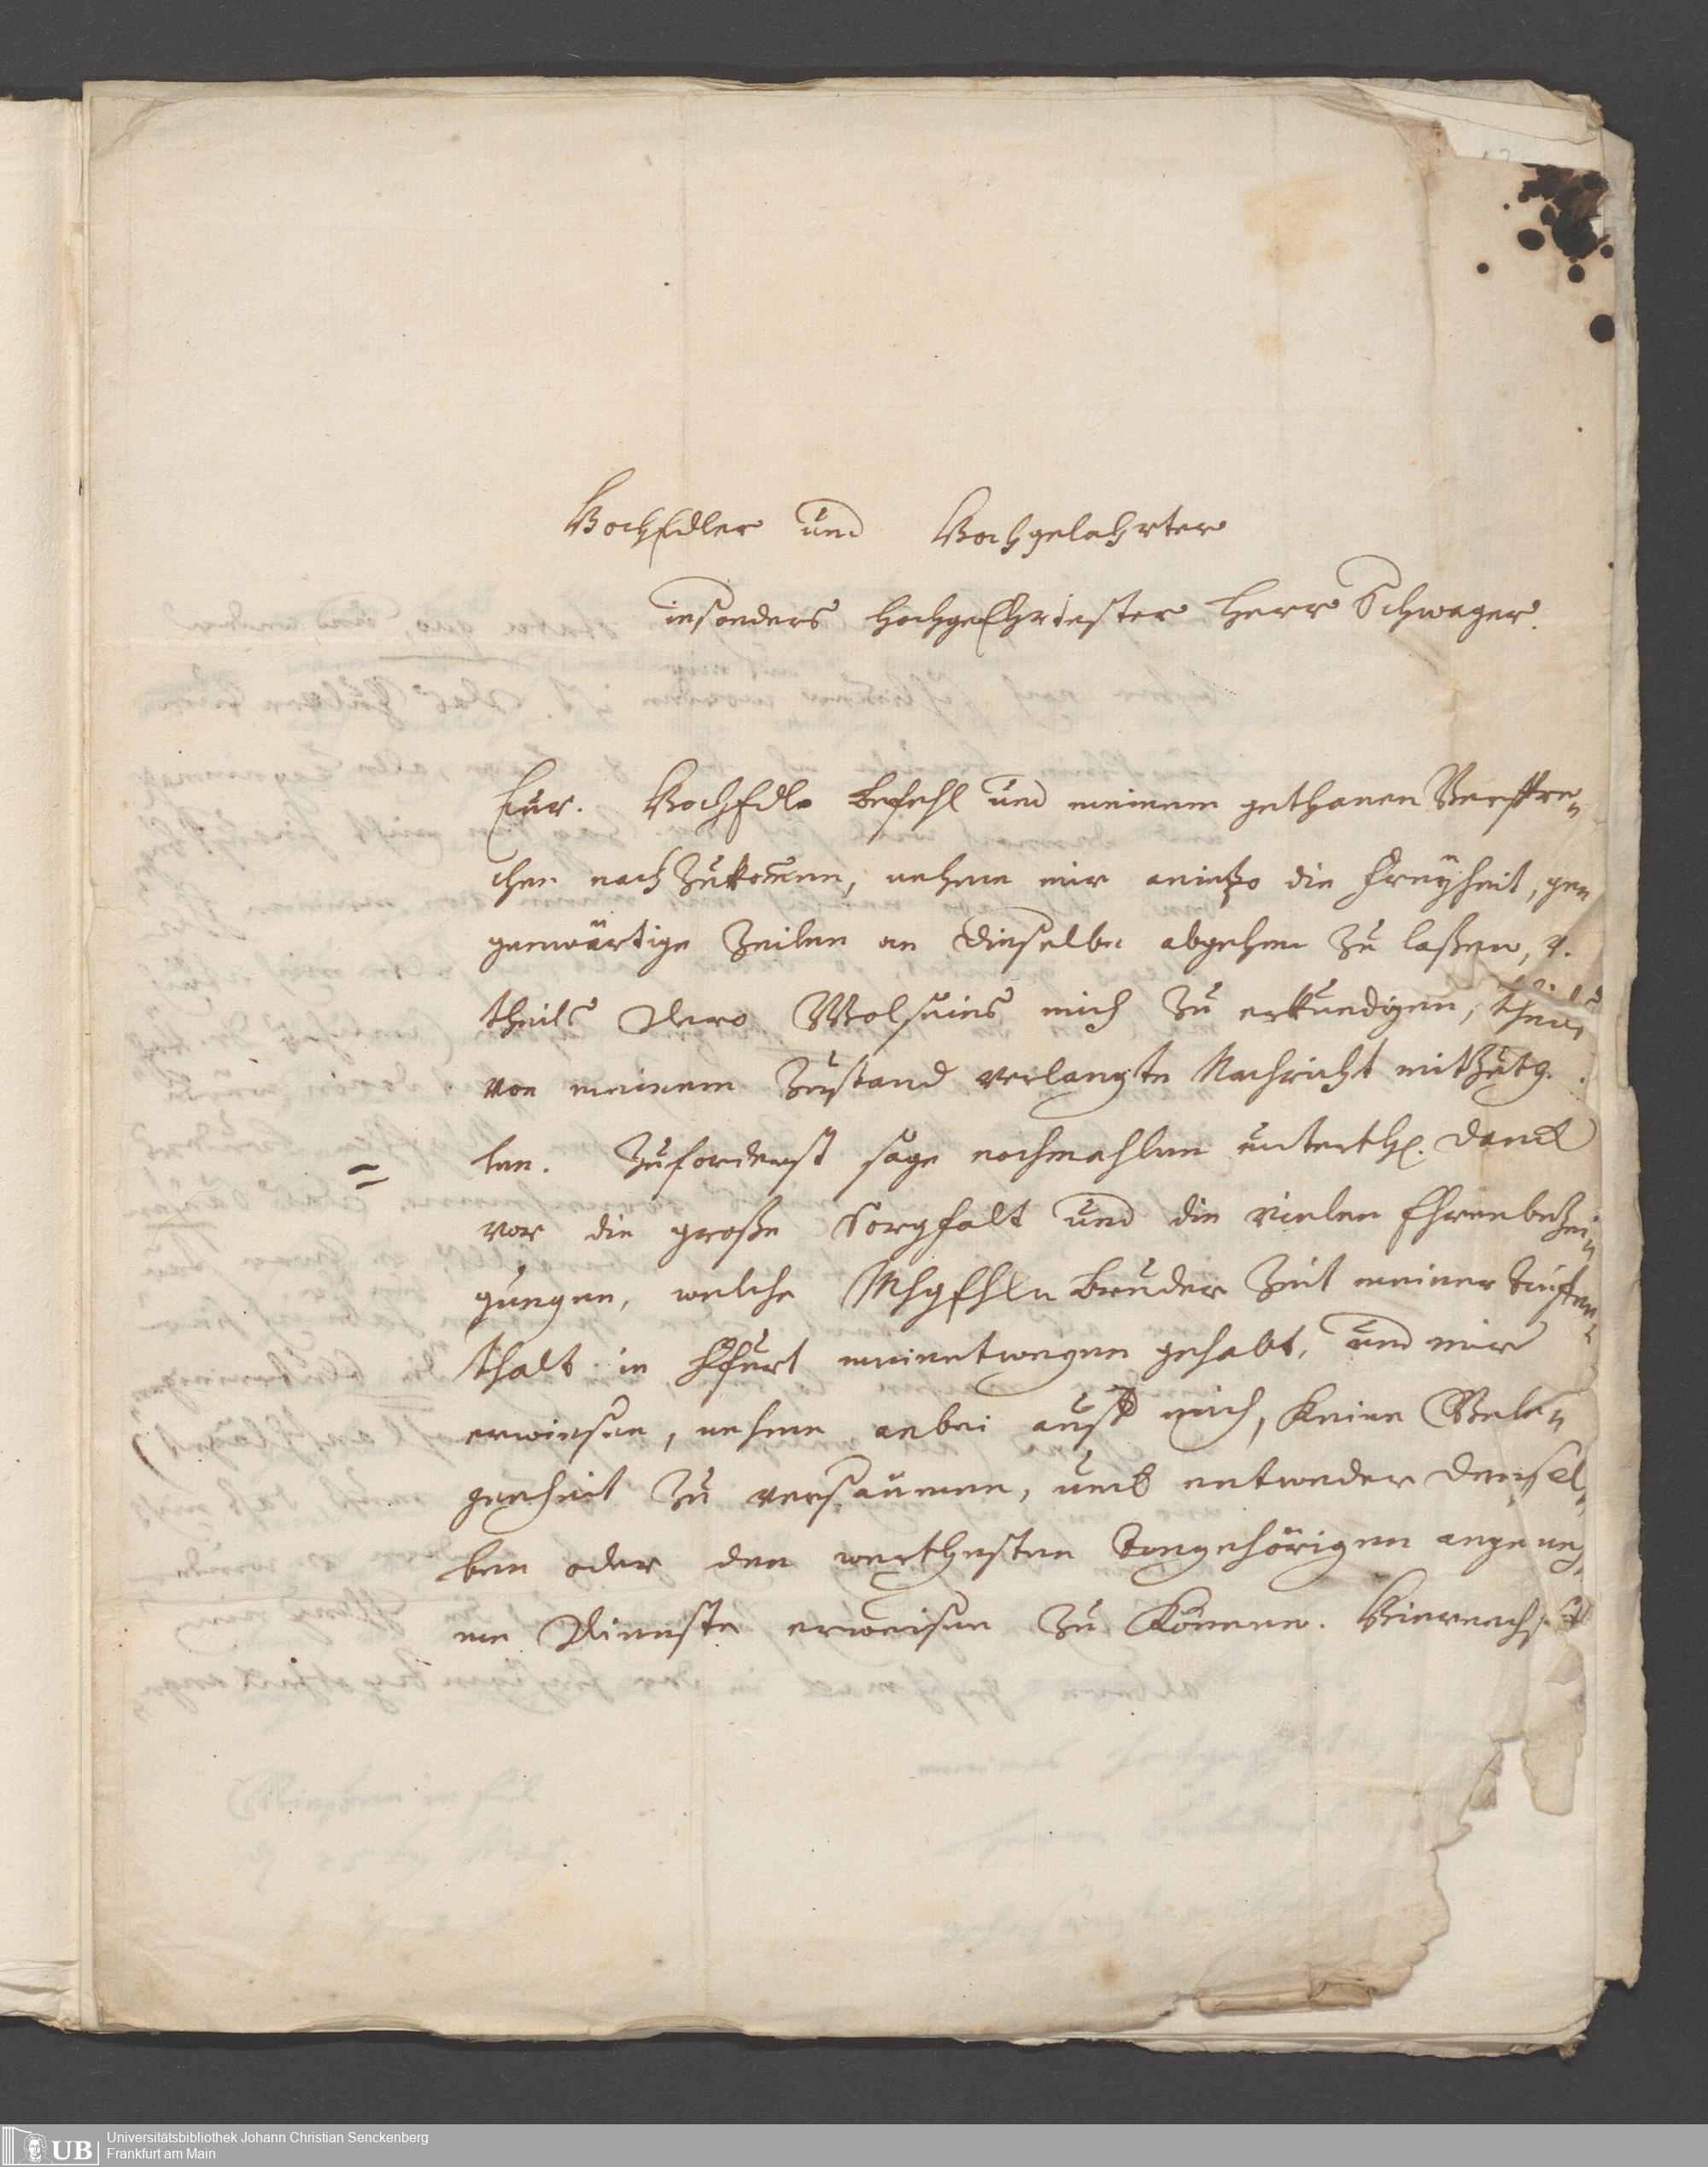 HochEdler und Hochgelahrter
insonders Hochgeehrtester Herr Schwager.
Eur. HochEdl. Befehl und meinem gethanen Verspre-
chen nach Zukommen, nehme mir anietzo die Freyheit, ge-
genwärtige Zeilen an Dieselbe abgehen zu laßen, u.
theils Dero Wolseins mich zu erkundigen, theils
von meinem Zustand verlangte Nachricht mitzuth.
len. Zuforderst sage nochmahlen unterth. Danck
vor die große Sorgfalt und die vielen Ehrenbezei-
gungen, welche Bruder Zeit meiner
thalt in Ffurt meinetwegen gehabt, und mir
erwiesen, nehme anbei auff mich, keine Gele-
genheit zu versäumen, umb entweder Densel-
ben oder den werthesten Angehörigen angeneh-
me Dienste erweisen zu können. Hiernechst
Universitätsbibliothek Johann Christian Senckenberg
Frankfurt am Main
UB